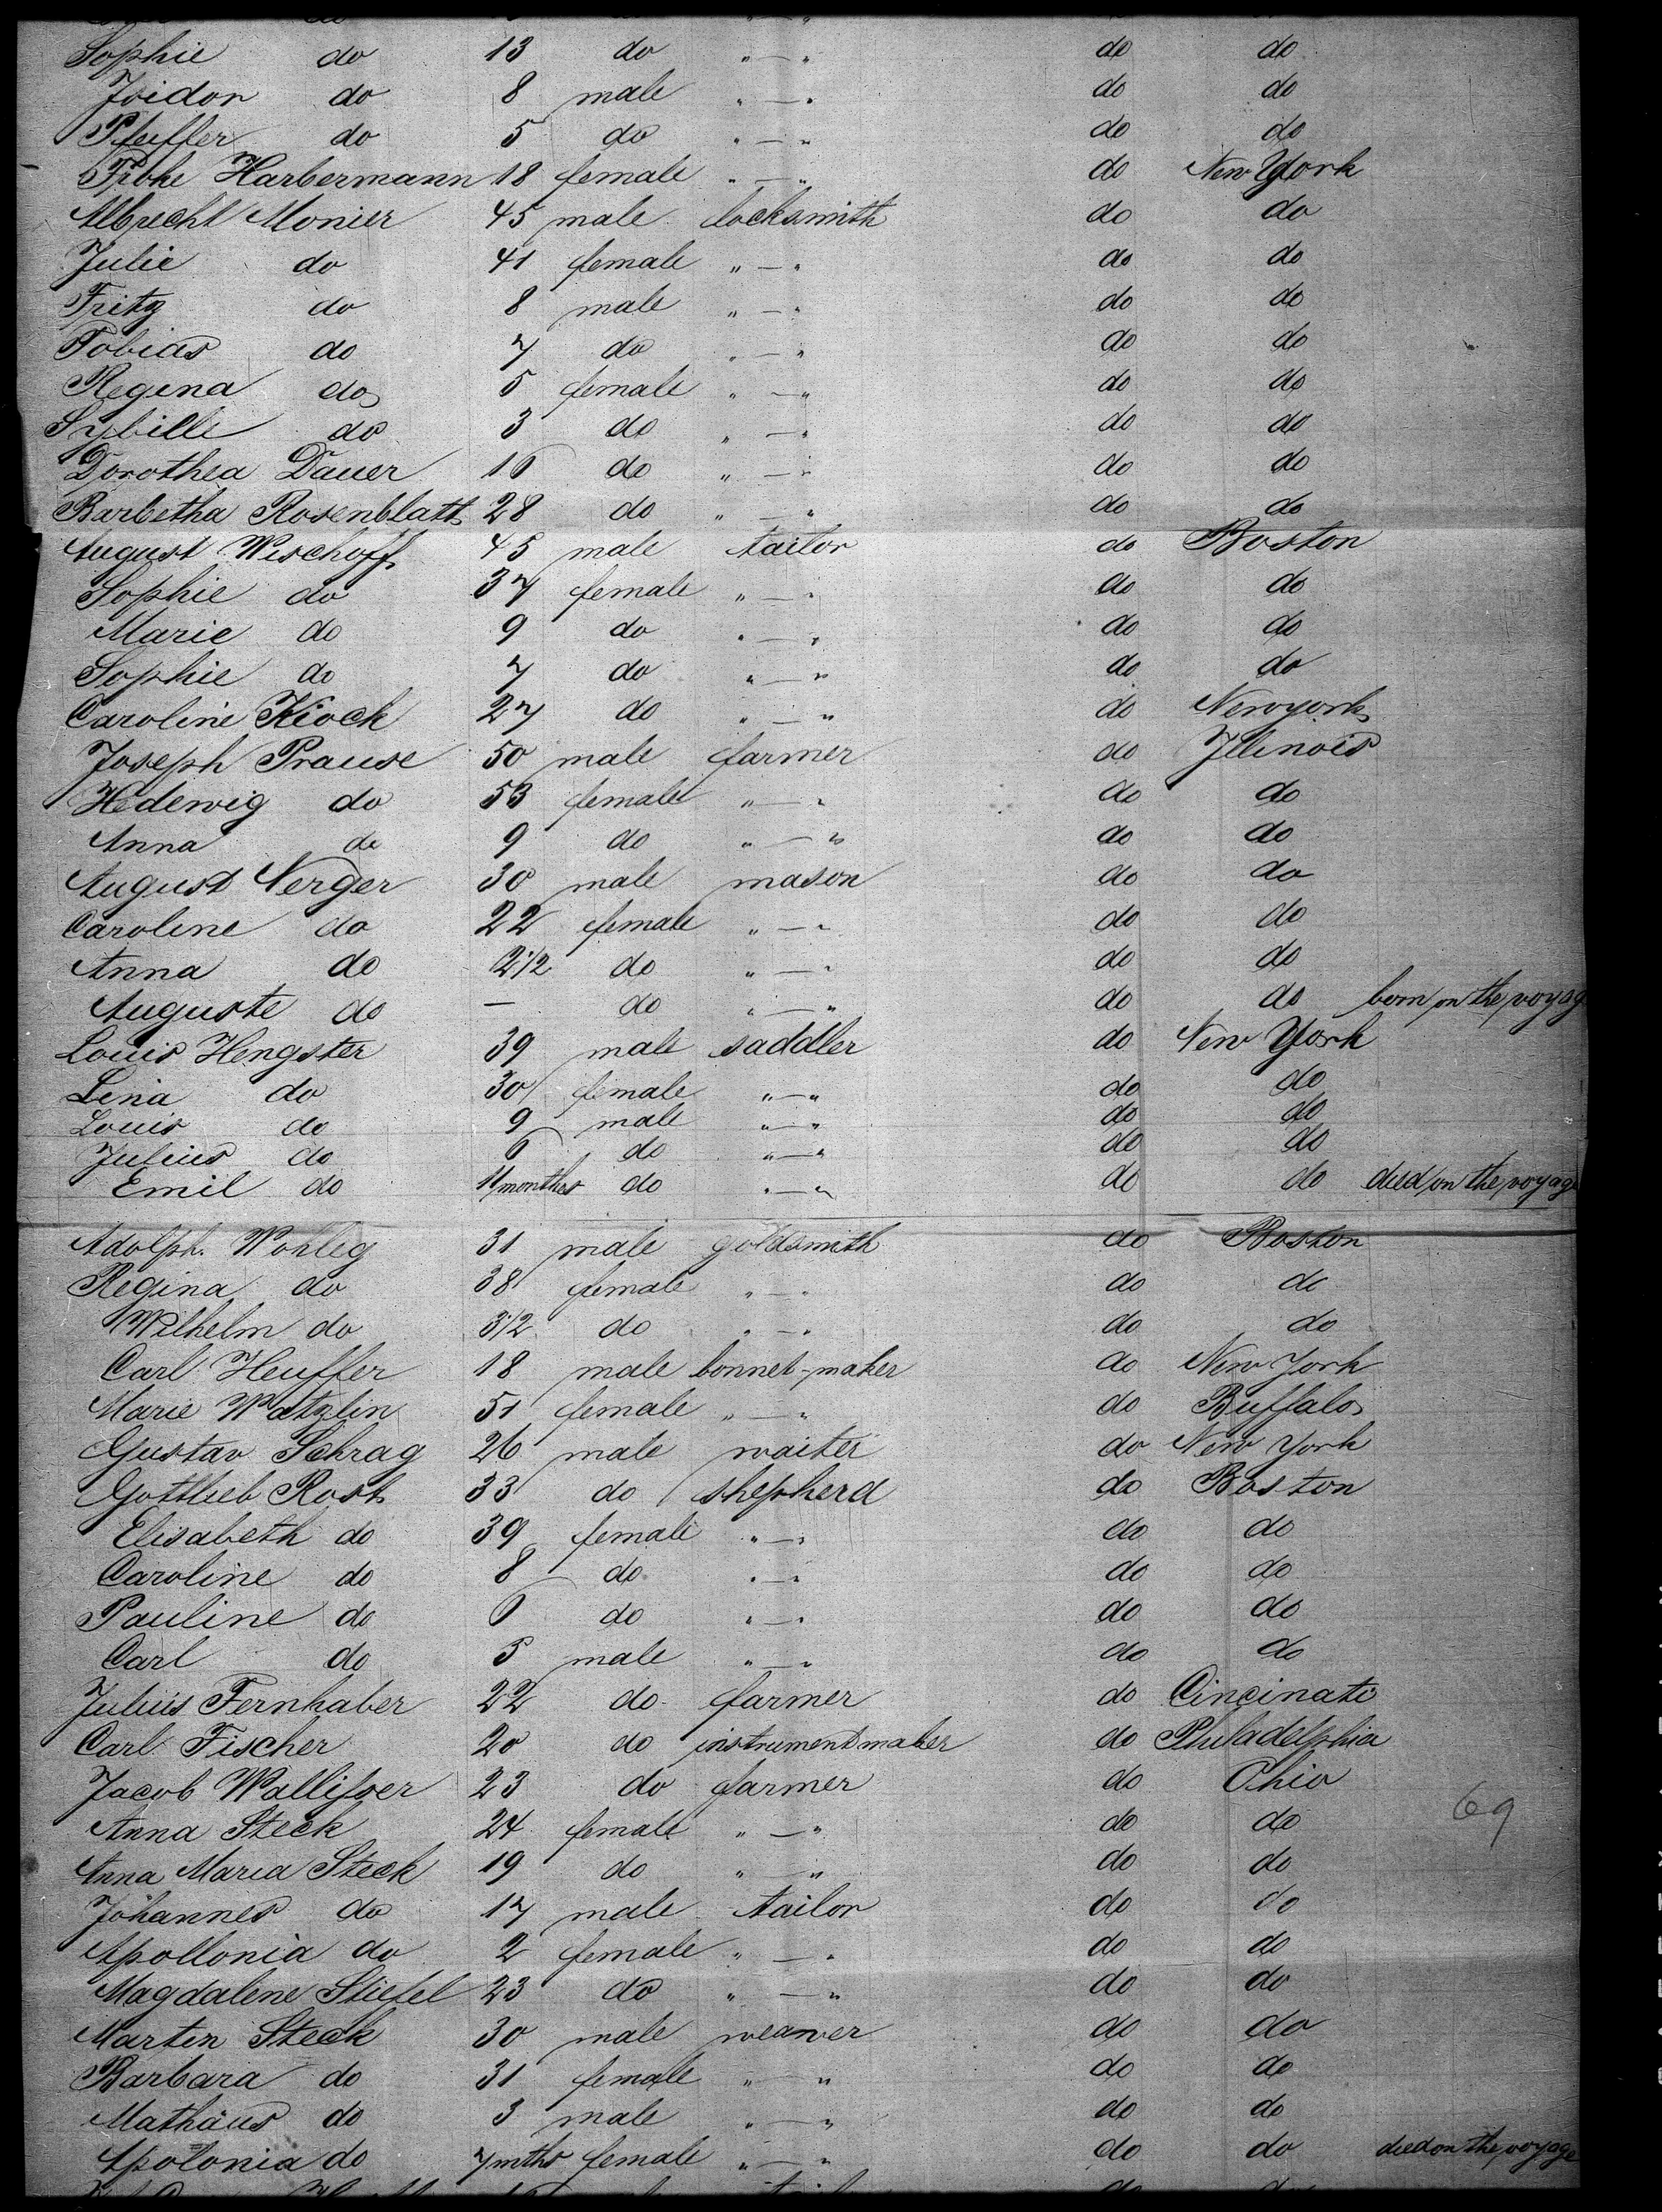 Sophie do 13 do " — " do do
Isidor do 8 male " — " do do
Pfeiffer do 5 do " — " do do
Harbermann 18 female " — " do New York
Albrecht Monier 45 male locksmith do do
Julie do 41 female " — " do do
Fritz do 8 male " — " do do
Tobias do 7 do " — " do do
Regina do 5 female " — " do do
Sybille do 3 do " — " do do
Dorothea Dauer 16 do " — " do do
Barbetha Rosenblatt 28 do " — " do do
August Wischoff 45 male tailor do Boston
Sophie do 37 female " — " do do
Marie do 9 do " — " do do
Sophie do 7 do " — " do do
Caroline Kiock 27 do " — " do Newyork
Joseph Prause 50 male farmer do Illinois
Hedewig do 53 female " — " do do
Anna do 9 do " — " do do
August Nerger 30 male mason do do
Caroline do 22 female " — " do do
Anna do 2 1/2 do " — " do do
Auguste do — do " — " do do born on the voyag
Louis Hengster 39 male saddler do New York
Lina do 30 female " — " do do
Louis do 9 male " — " do do
Julius do 6 do " — " do do
Emil do 11 months do " — " do do died on the voyage
Adolph. Wohleg 31 male goldsmith do Boston
Regina do 38 female " — " do do
Wilhelm do 3 1/2 do " — " do do
Carl Heuffer 18 male bonnet-maker do New York
Marie Watzlin 51 female " — " do Buffalo
Gustav Schrag 26 male waiter do New York
Gottlieb Rost 33 do shepherd do Boston
Elisabeth do 39 female " — " do do
Caroline do 8 do " — " do do
Pauline do 6 do " — " do do
Carl do 5 male " — " do do
Julius Fernhaber 22 do farmer do Cincinati
Carl Fischer 20 do instrumentmaker do Philadelphia
Jacob Wallisser 23 do farmer do Ohio
69
Anna Steck 24 female " — " do do
Anna Maria Steck 19 do " — " do do
Johannes do 17 male tailor do do
Apollonia do 2 female " — " do do
Magdalene Stiefel 23 do " — " do do
Martin Steck 30 male weawer do do
Barbara do 31 female " — " do do
Mathäus do 3 male " — " do do
Apolonia do 7 mths female " — " do do died on the voyage